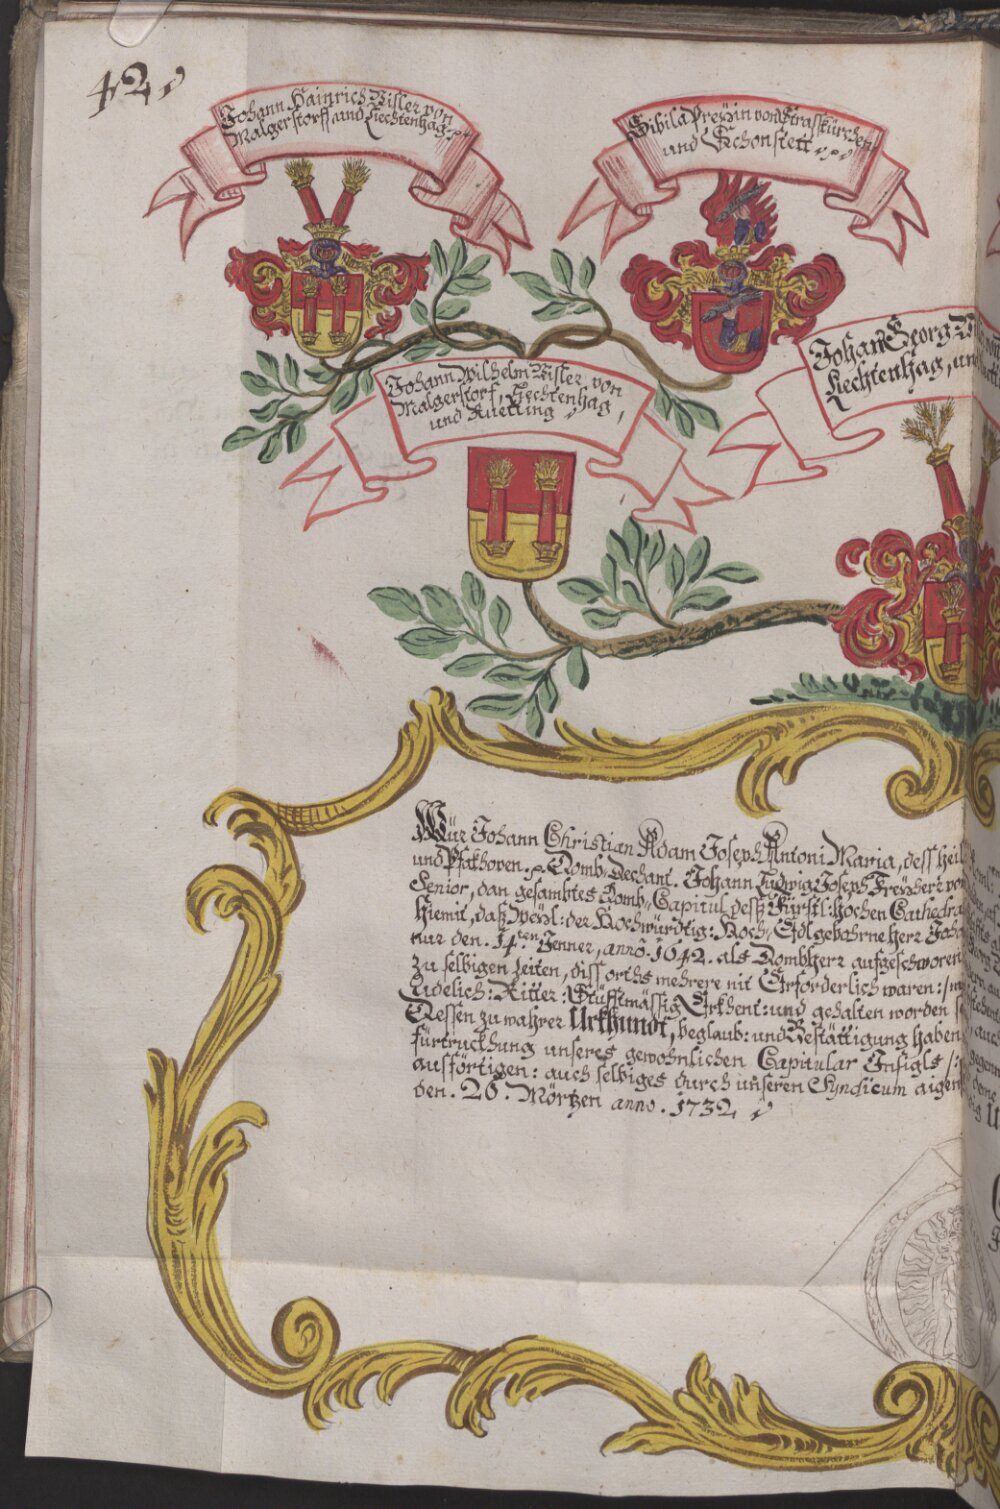 42
Johann Hainrich Visler von
Malgerstorff und Liechtenhag
Sibila Preÿin von Strasskürchen
und Schonstett
Johann Georg
Liechtenhag, und
Johann Wilhelm Visler von
Malgerstorf, Liechtenhag,
und Ruetting
Wür Johann Christian Adam Joseph Antoni Maria, dess heil
und Pfakhoven. Domb-Dechant. Johann Ludwig Joseph Freÿherr von
Senior, dan gesambtes Domb-Capitul dess Fürstl: hochen Cathedra
hiemit, daß weÿl: der Hochwürdtig: Hoch-Edlgebohrne herr Joha
nur den. 14.ten Jenner, anno. 1642. als Dombherr aufgeschworen
zu selbigen zeiten, diss orths mehrere nit Erforderlich waren:
Adelich: Ritter: Stüfftmässig Erkhent: und gehalten worden
Dessen zu wahrer Urkhundt, beglaub: und Bestättigung haben
fürtruckhung unseres gewohnlichen Capitular Insigls
ausförtigen: auch selbiges durch unseren Syndicum aigen
den. 26. Mörtzen anno. 1732